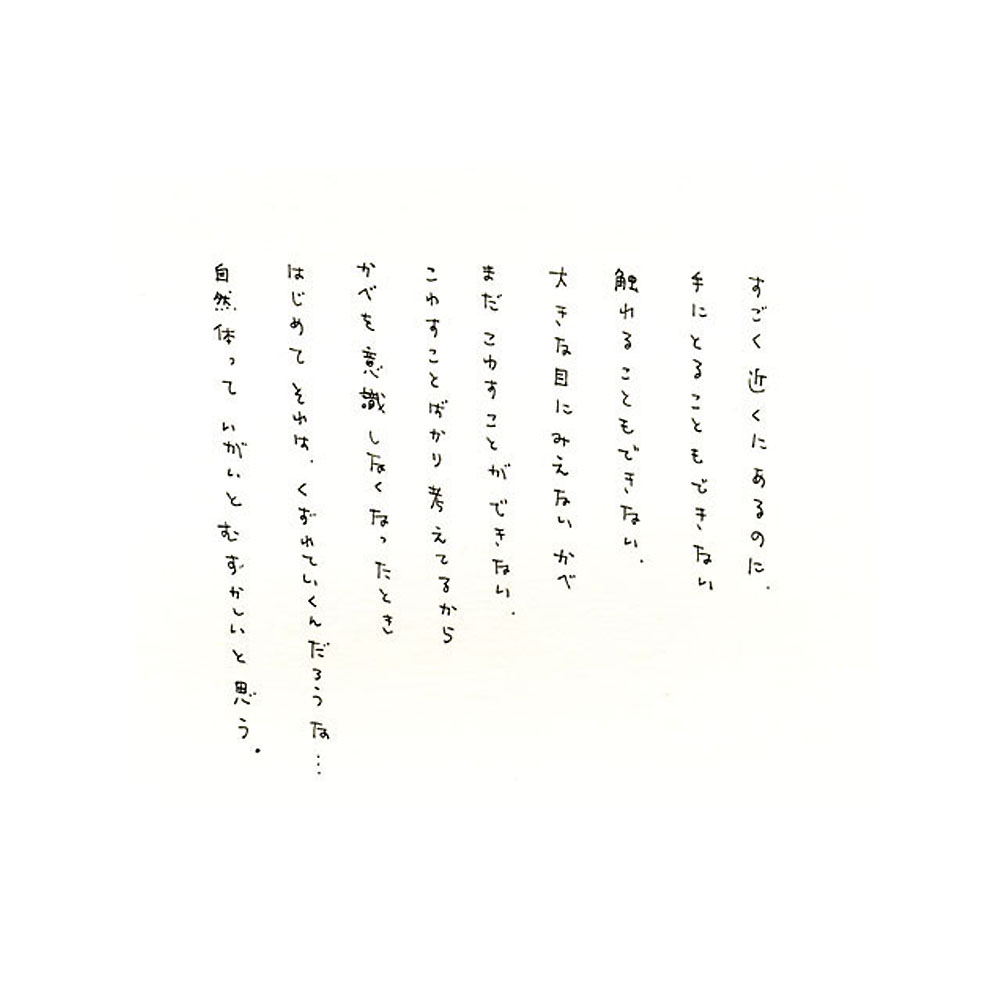 すごく近くにあるのに.
手にとることもできない
触れることもできない.
大きな目にみえないかべ
まだこわすことができない.
こわすことばかり考えてるから
かべを意識しなくなったとき
はじめてそれは.くずれていくんだろうな…
自然体っていがいとむずかしいと思う.